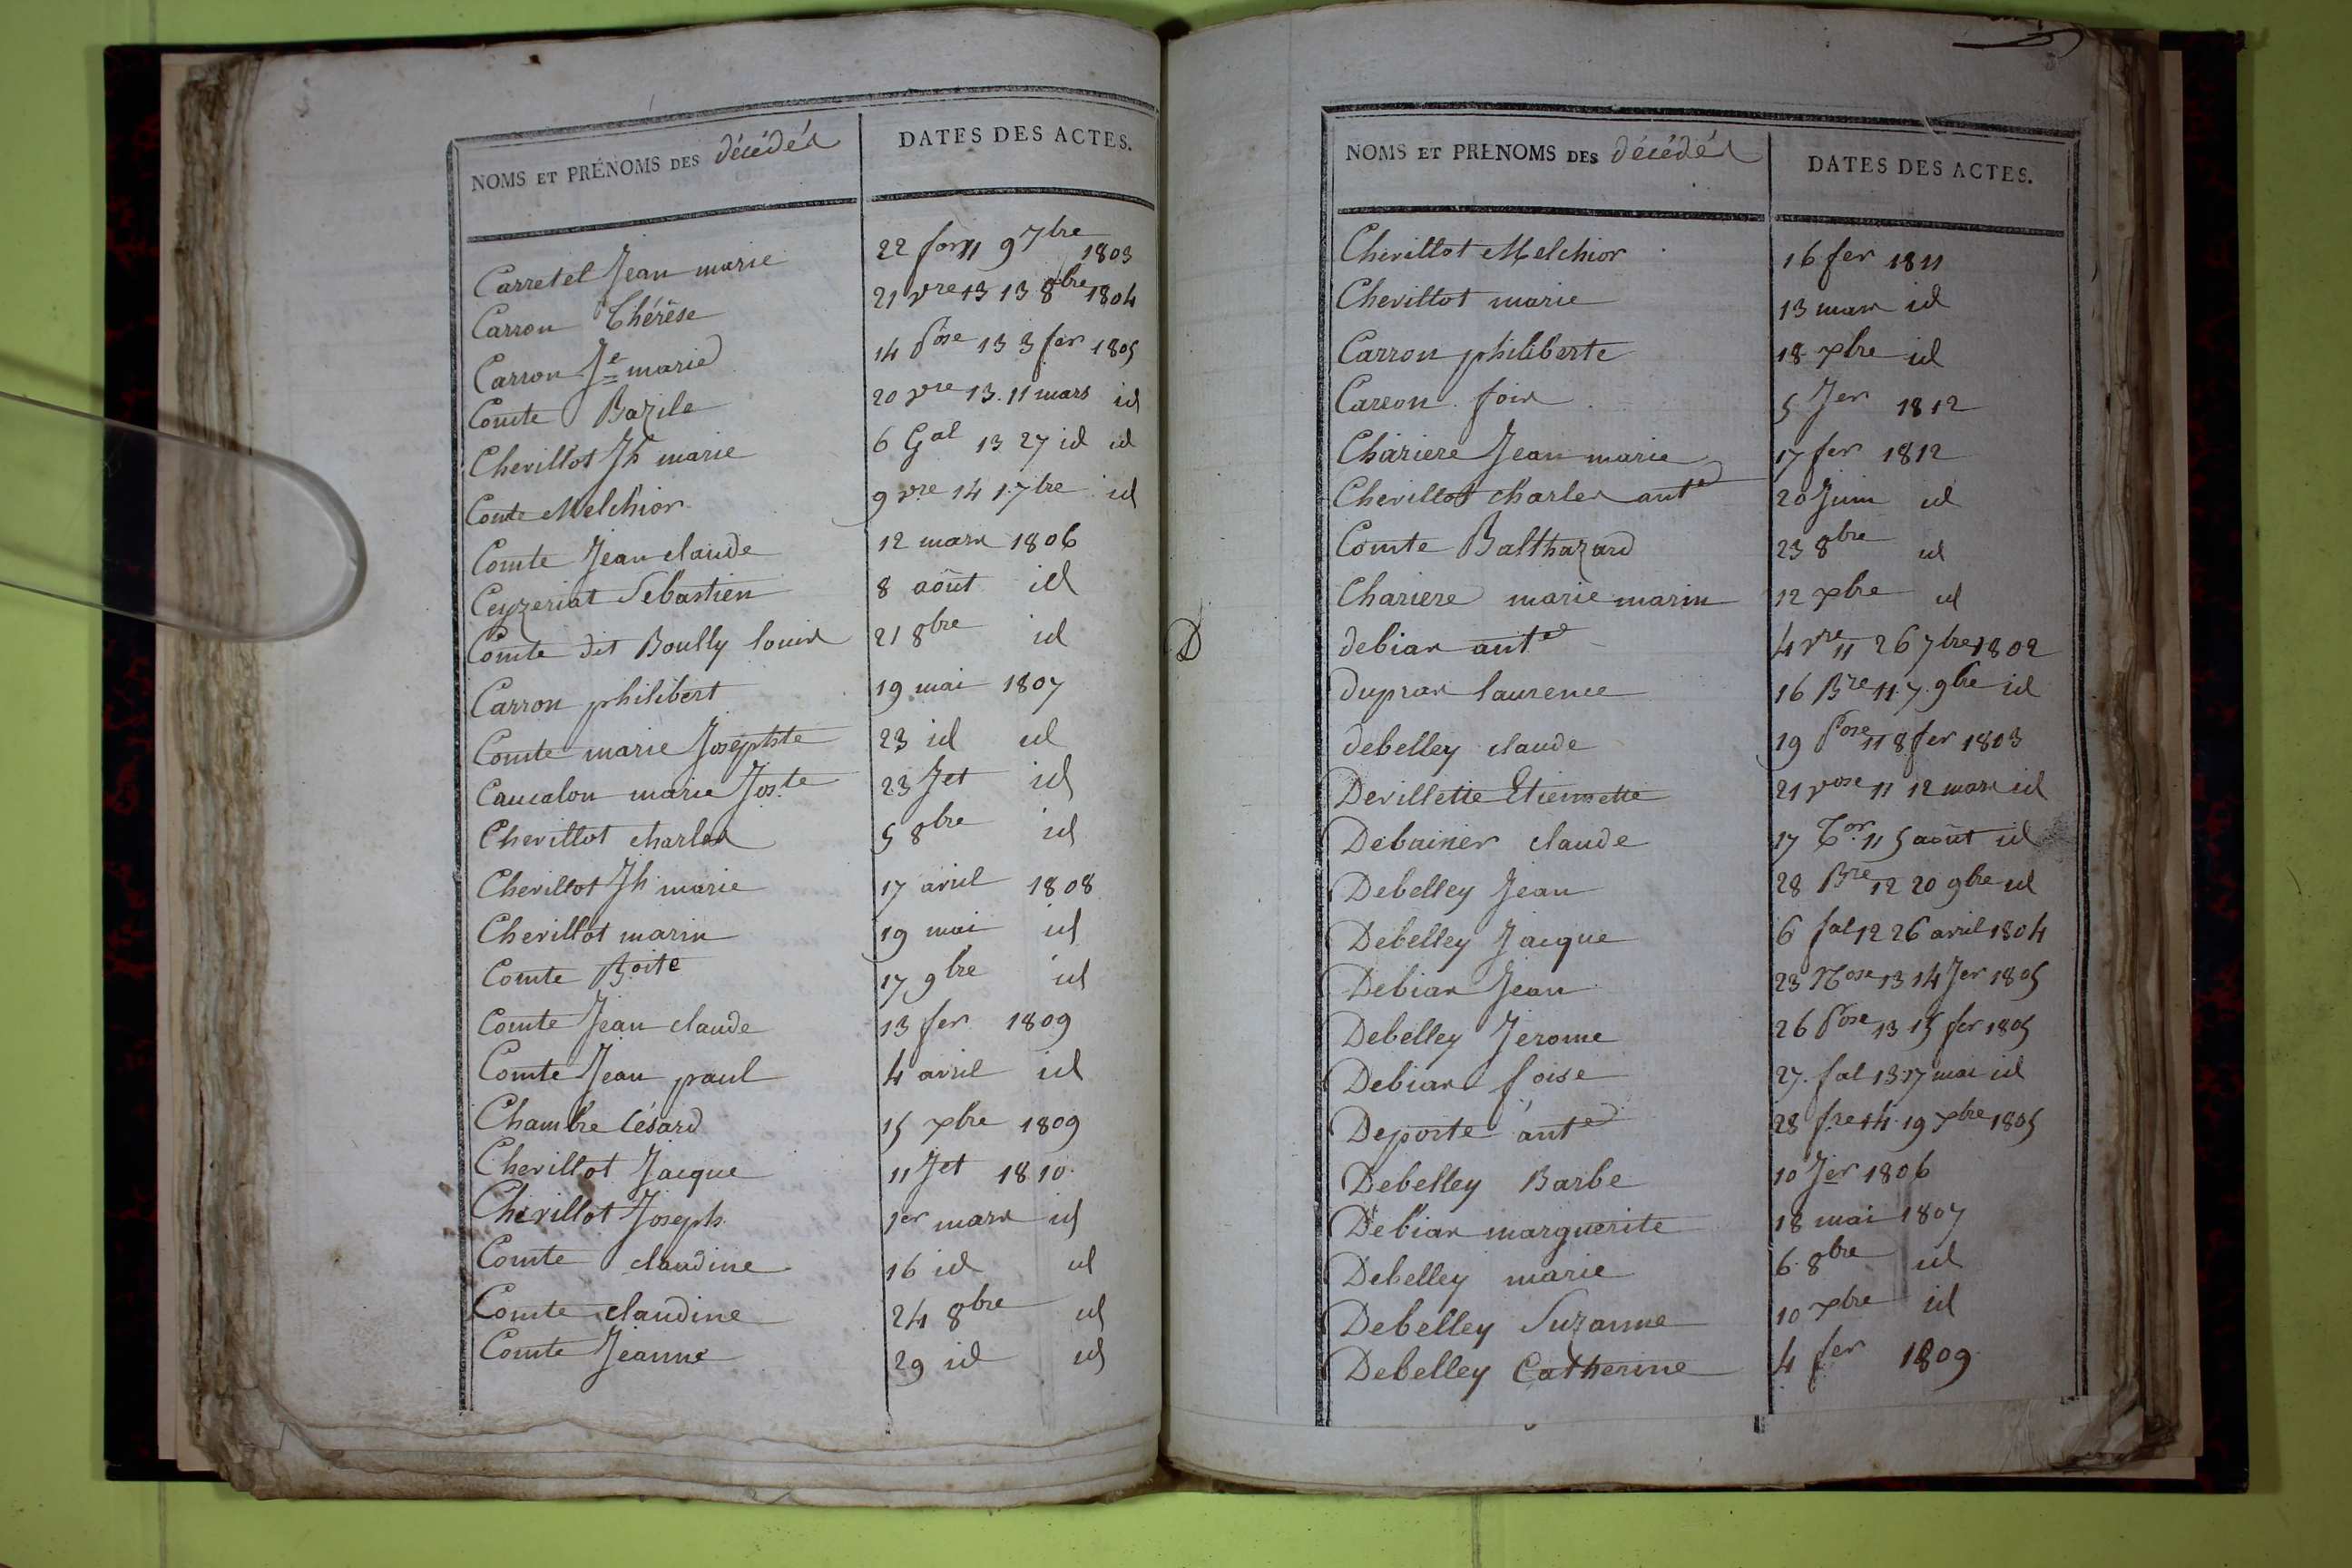 NOMS ET PRÉNOMS DES décédés DATES DES ACTES.
Carretel Jean marie 22 for 11 9 7bre 1803
Carron Thérèse 21 vre 13 13 8bre 1804
Carron Je marie 14 Pôse 13 3 fer 1805
Comte Bazile 20 vre 13. 11 mars id
Chevillot Jh marie 6 Gal 13 27 id id
Comte Melchior 9 vre 14 1. 7bre id
Comte Jean claude 12 mars 1806
Ceyzeriat Sébastien 8 août id
Comte dit Boully louis 21 8bre id
Carron philibert 19 mai 1807
Comte marie Josephte 23 id id
Caucalon marie Joste 23 Jet id
Chevillot charles 5 8bre id
Chevillot Jh marie 17 avril 1808
Chevillot marin 19 mai id
Comte Boite 17 9bre id
Comte Jean claude 13 fer 1809
Comte Jean paul 4 avril id
Chambre César 15 xbre 1809
Chevillot Jacque 11 Jet 1810
Chevillot Joseph 1er mars id
Comte claudine 16 id id
Comte claudine 24 8bre id
Comte Jeanne 29 id id
NOMS ET PRENOMS DES décédés DATES DES ACTES.
Chevillot Melchior 16 fer 1811
Chevillot marie 13 mars id
Carron philiberte 18 xbre id
Carron fois 5 Jer 1812
Chariere Jean marie 17 fer 1812
Chevillot charles ante 20 Juin id
Comte Balthazard 23 8bre id
Chariere marie marin 12 xbre id
D debias ante 4 vre 11 26 7bre 1802
dupras laurence 16 Bre 11. 7. 9bre id
debelley claude 19 Pose 11 8 fer 1803
Devillette Etiennette 21 vose 11 12 mars id
Debainer claude 17 Tor. 11 5 août id
Debelley Jean 28 Bre 12 20 9bre id
Debelley Jacque 6 fal 12 26 avril 1804
Debias Jean 23 Nose 13 14 Jer 1805
Debelley Jerome 26 Pose 13 15 fer 1805
Debias foise 27. fal 13 17 mai id
Deporte ante 28 fre 14. 19 xbre 1805
Debelley Barbe 10 Jer 1806
Debias marguerite 18 mai 1807
Debelley marie 6. 8bre id
Debelley Suzanne 10 xbre id
Debelley Catherine 4 fer 1809